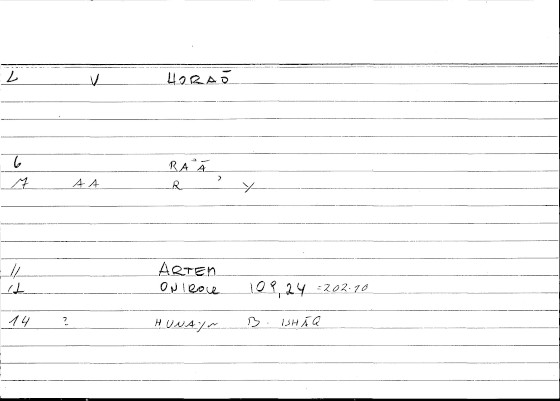 L V HORAŌ
6 RA'Ā
17 AA R ' Y
11 ARTEM
12 ONIROCR 109,24 =202.10
14 ? HUNAYN B. ISHĀQ